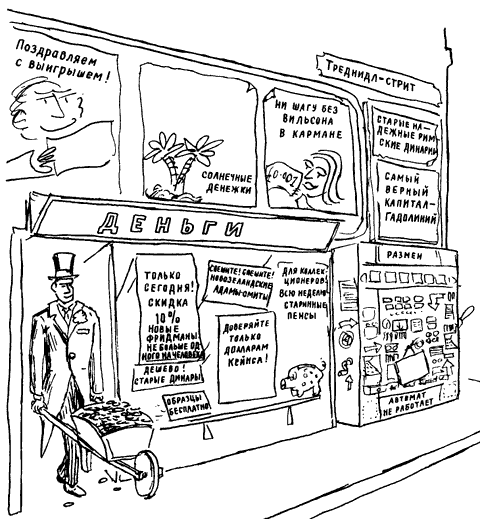 Поздравляем
с выигрышем!
СОЛНЕЧНЫЕ
ДЕНЕЖКИ
НИ ШАГУ БЕЗ
ВИЛЬСОНА
В КАРМАНЕ
0·001
ТРЕДНИДЛ-СТРИТ
СТАРЫЕ НА-
ДЕЖНЫЕ РИМ-
СКИЕ ДИНАРИИ
САМЫЙ
ВЕРНЫЙ
КАПИТАЛ-
ГАДОЛИНИЙ
ДЕНЬГИ
РАЗМЕН
ТОЛЬКО
СЕГОДНЯ!
СКИДКА
10%
НОВЫЕ
ФРИДМАНЫ
НЕ БОЛЬШЕ ОД-
НОГО НА ЧЕЛОВЕКА
ДЕШЕВО!
СТАРЫЕ ДИНАРЫ
ОБРАЗЦЫ
БЕСПЛАТНО
СПЕШИТЕ! СПЕШИТЕ!
НОВОЗЕЛАНДСКИЕ
АДАМЫ-СМИТЫ
ДОВЕРЯЙТЕ
ТОЛЬКО
ДОЛЛАРАМ
КЕЙНСА!
ДЛЯ КОЛЛЕК-
ЦИОНЕРОВ!
ВСЮ НЕДЕЛЮ
СТАРИННЫЕ
ПЕНСЫ
АВТОМАТ
НЕ РАБОТАЕТ